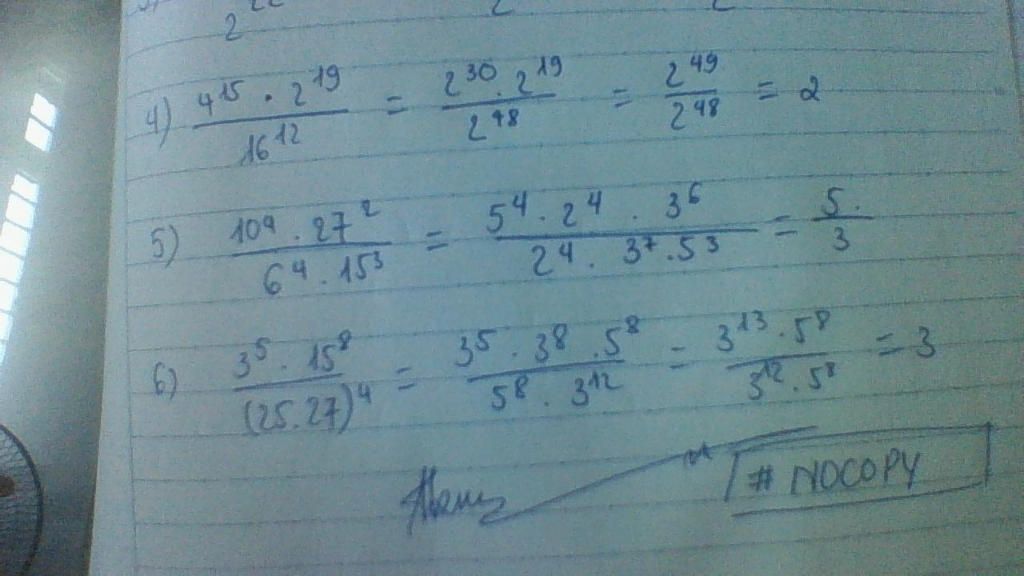 2^22 2 2
4) 4^15 . 2^19 / 16^12 = 2^30 . 2^19 / 2^48 = 2^49 / 2^48 = 2
5) 10^4 . 27^2 / 6^4 . 15^3 = 5^4 . 2^4 . 3^6 / 2^4 . 3^7 . 5^3 = 5 / 3
6) 3^5 . 15^8 / (25.27)^4 = 3^5 . 3^8 . 5^8 / 5^8 . 3^12 = 3^13 . 5^8 / 3^12 . 5^8 = 3
# NOCOPY